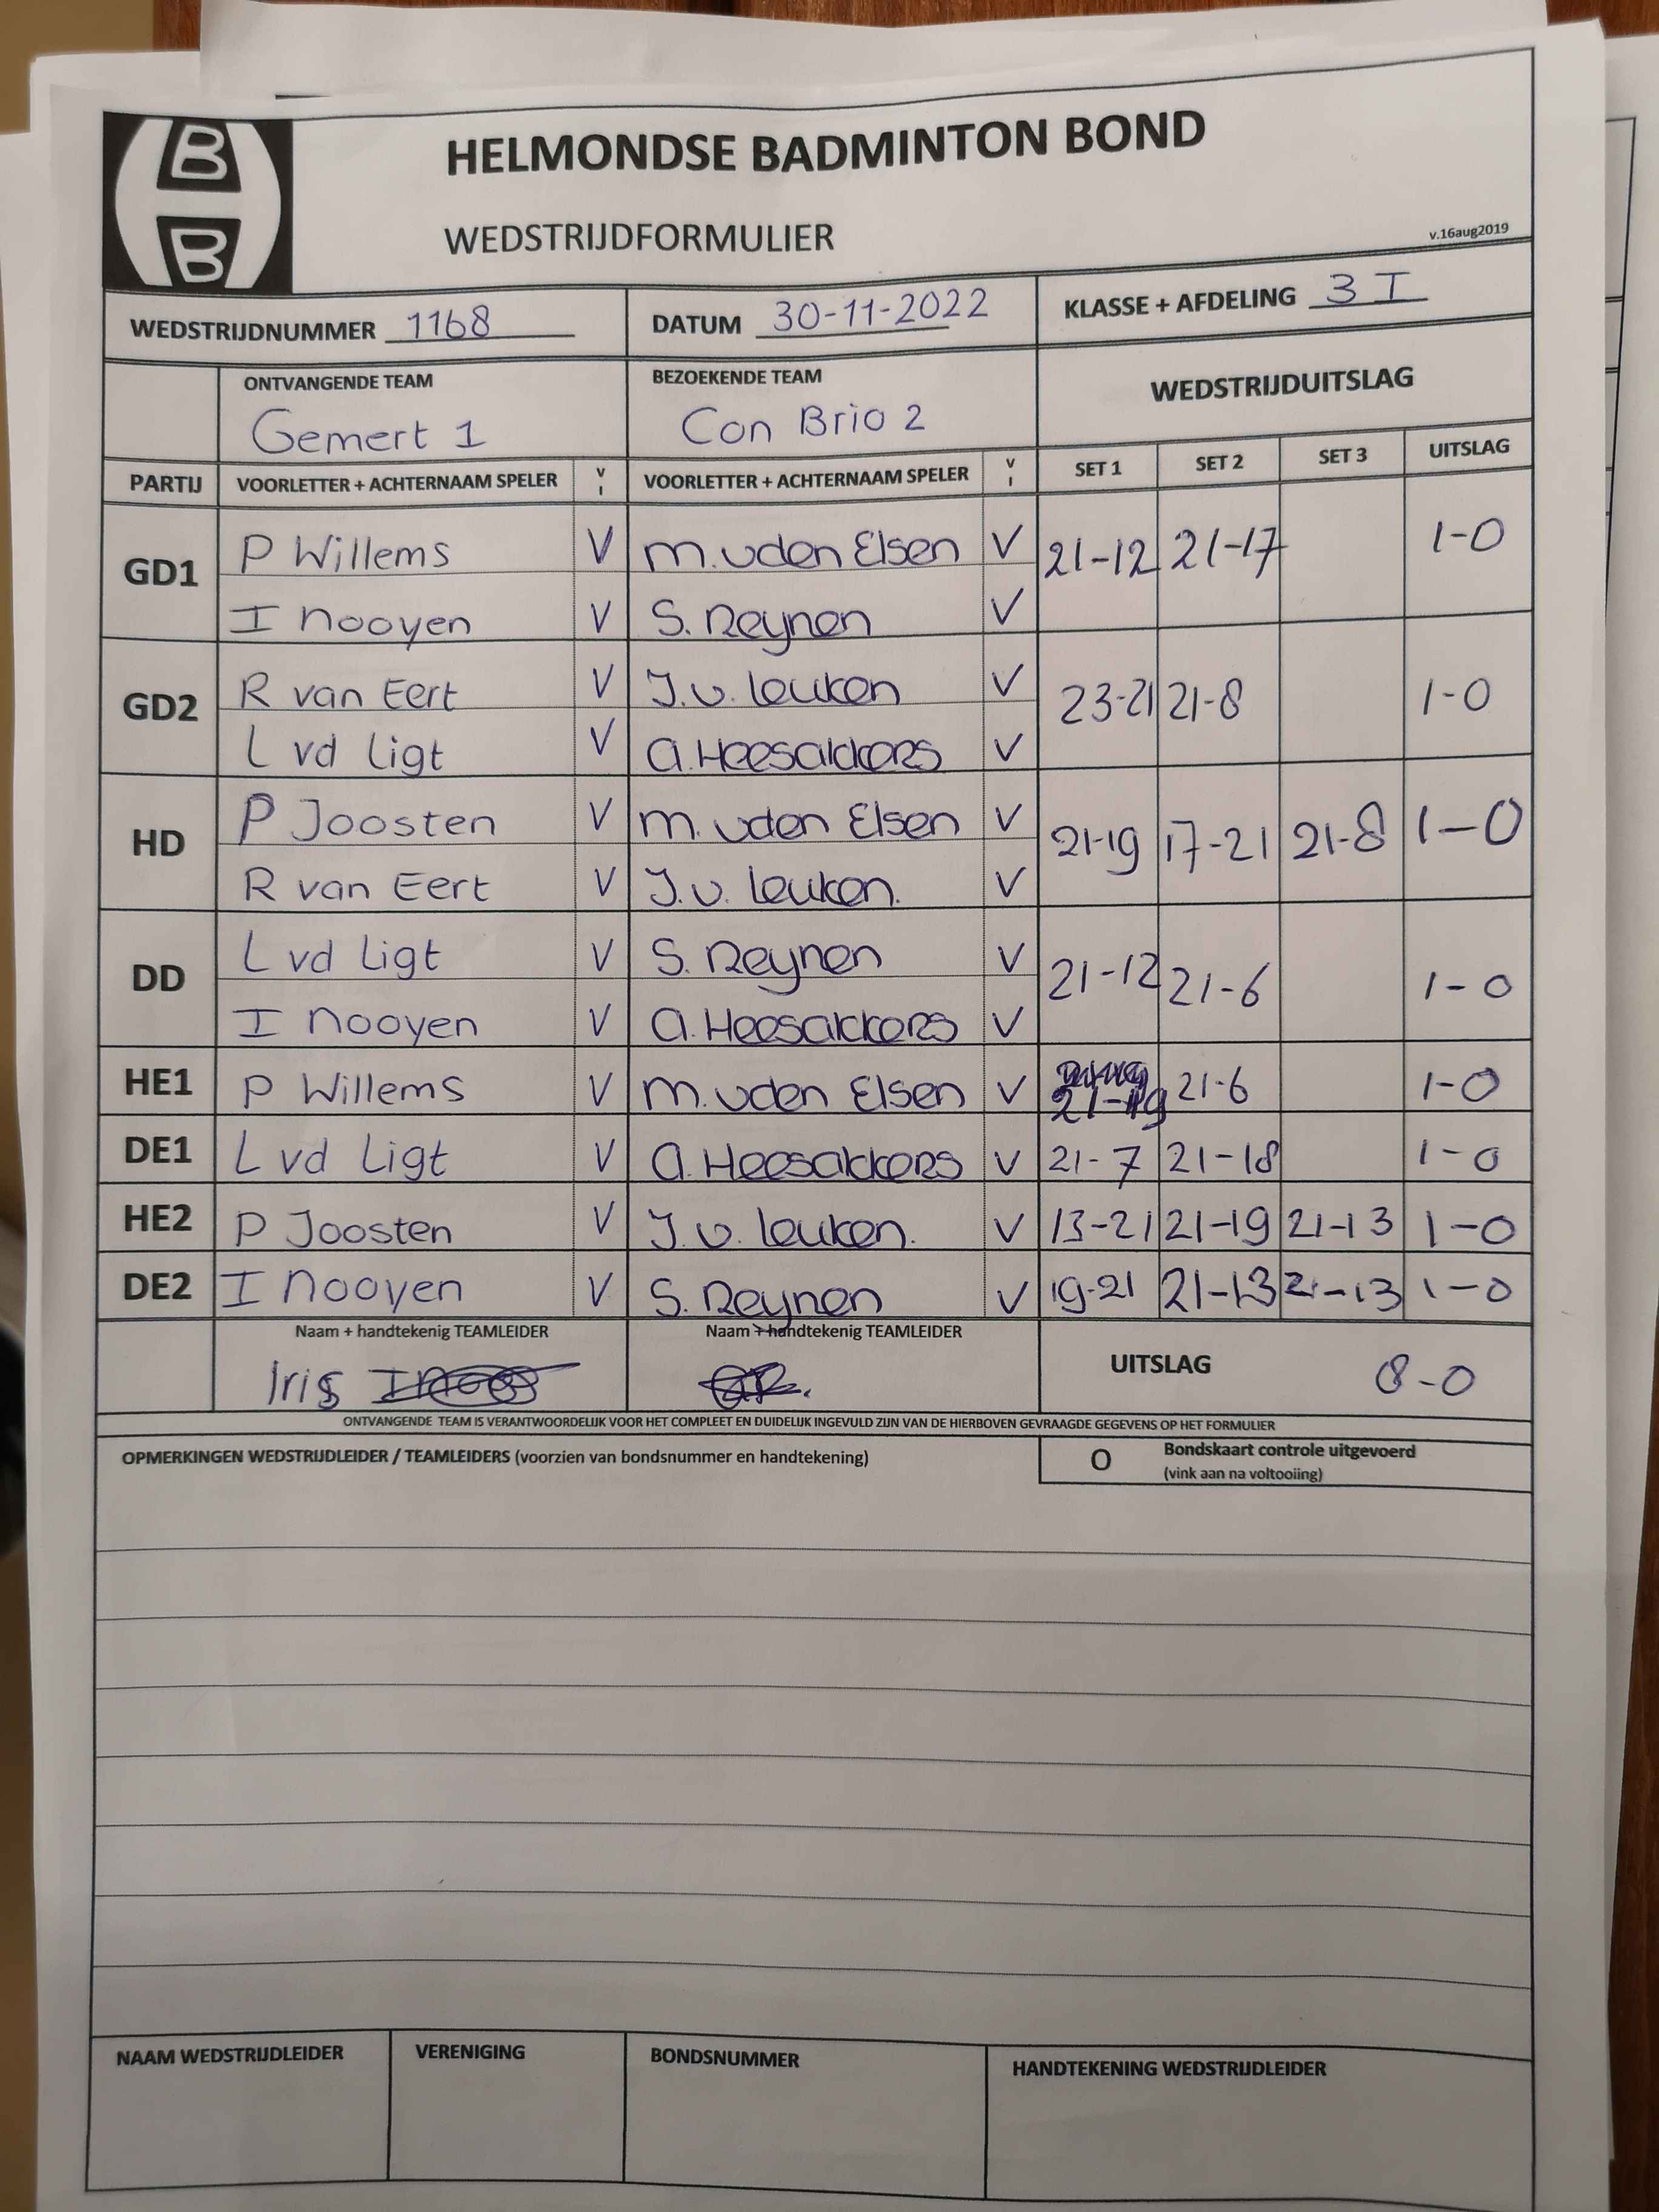 B
B
HELMONDSE BADMINTON BOND
WEDSTRIJDFORMULIER
v.16aug2019
WEDSTRIJDNUMMER 1168 DATUM 30-11-2022 KLASSE + AFDELING 3 I
ONTVANGENDE TEAM BEZOEKENDE TEAM WEDSTRIJDUITSLAG
Gemert 1 Con Brio 2
PARTIJ VOORLETTER + ACHTERNAAM SPELER V I VOORLETTER + ACHTERNAAM SPELER V I SET 1 SET 2 SET 3 UITSLAG
GD1 P Willems V M. vden Elsen V 21-12 21-17 1-0
I Nooyen V S. Reynen V
GD2 R van Eert V J. v. Leuken V 23-21 21-8 1-0
L vd Ligt V A. Heesakkers V
HD P Joosten V M. vden Elsen V 21-19 17-21 21-8 1-0
R van Eert V J. v. Leuken. V
DD L vd Ligt V S. Reynen V 21-12 21-6 1-0
I Nooyen V A. Heesakkers V
HE1 P Willems V M. vden Elsen V 21-19 21-6 1-0
DE1 L vd Ligt V A. Heesakkers V 21-7 21-18 1-0
HE2 P Joosten V J. v. Leuken. V 13-21 21-19 21-13 1-0
DE2 I Nooyen V S. Reynen V 19-21 21-13 21-13 1-0
Naam + handtekenig TEAMLEIDER Naam + handtekenig TEAMLEIDER UITSLAG 8-0
Iris
ONTVANGENDE TEAM IS VERANTWOORDELIJK VOOR HET COMPLEET EN DUIDELIJK INGEVULD ZIJN VAN DE HIERBOVEN GEVRAAGDE GEGEVENS OP HET FORMULIER
OPMERKINGEN WEDSTRIJDLEIDER / TEAMLEIDERS (voorzien van bondsnummer en handtekening) O Bondskaart controle uitgevoerd
(vink aan na voltooiing)
NAAM WEDSTRIJDLEIDER VERENIGING BONDSNUMMER HANDTEKENING WEDSTRIJDLEIDER